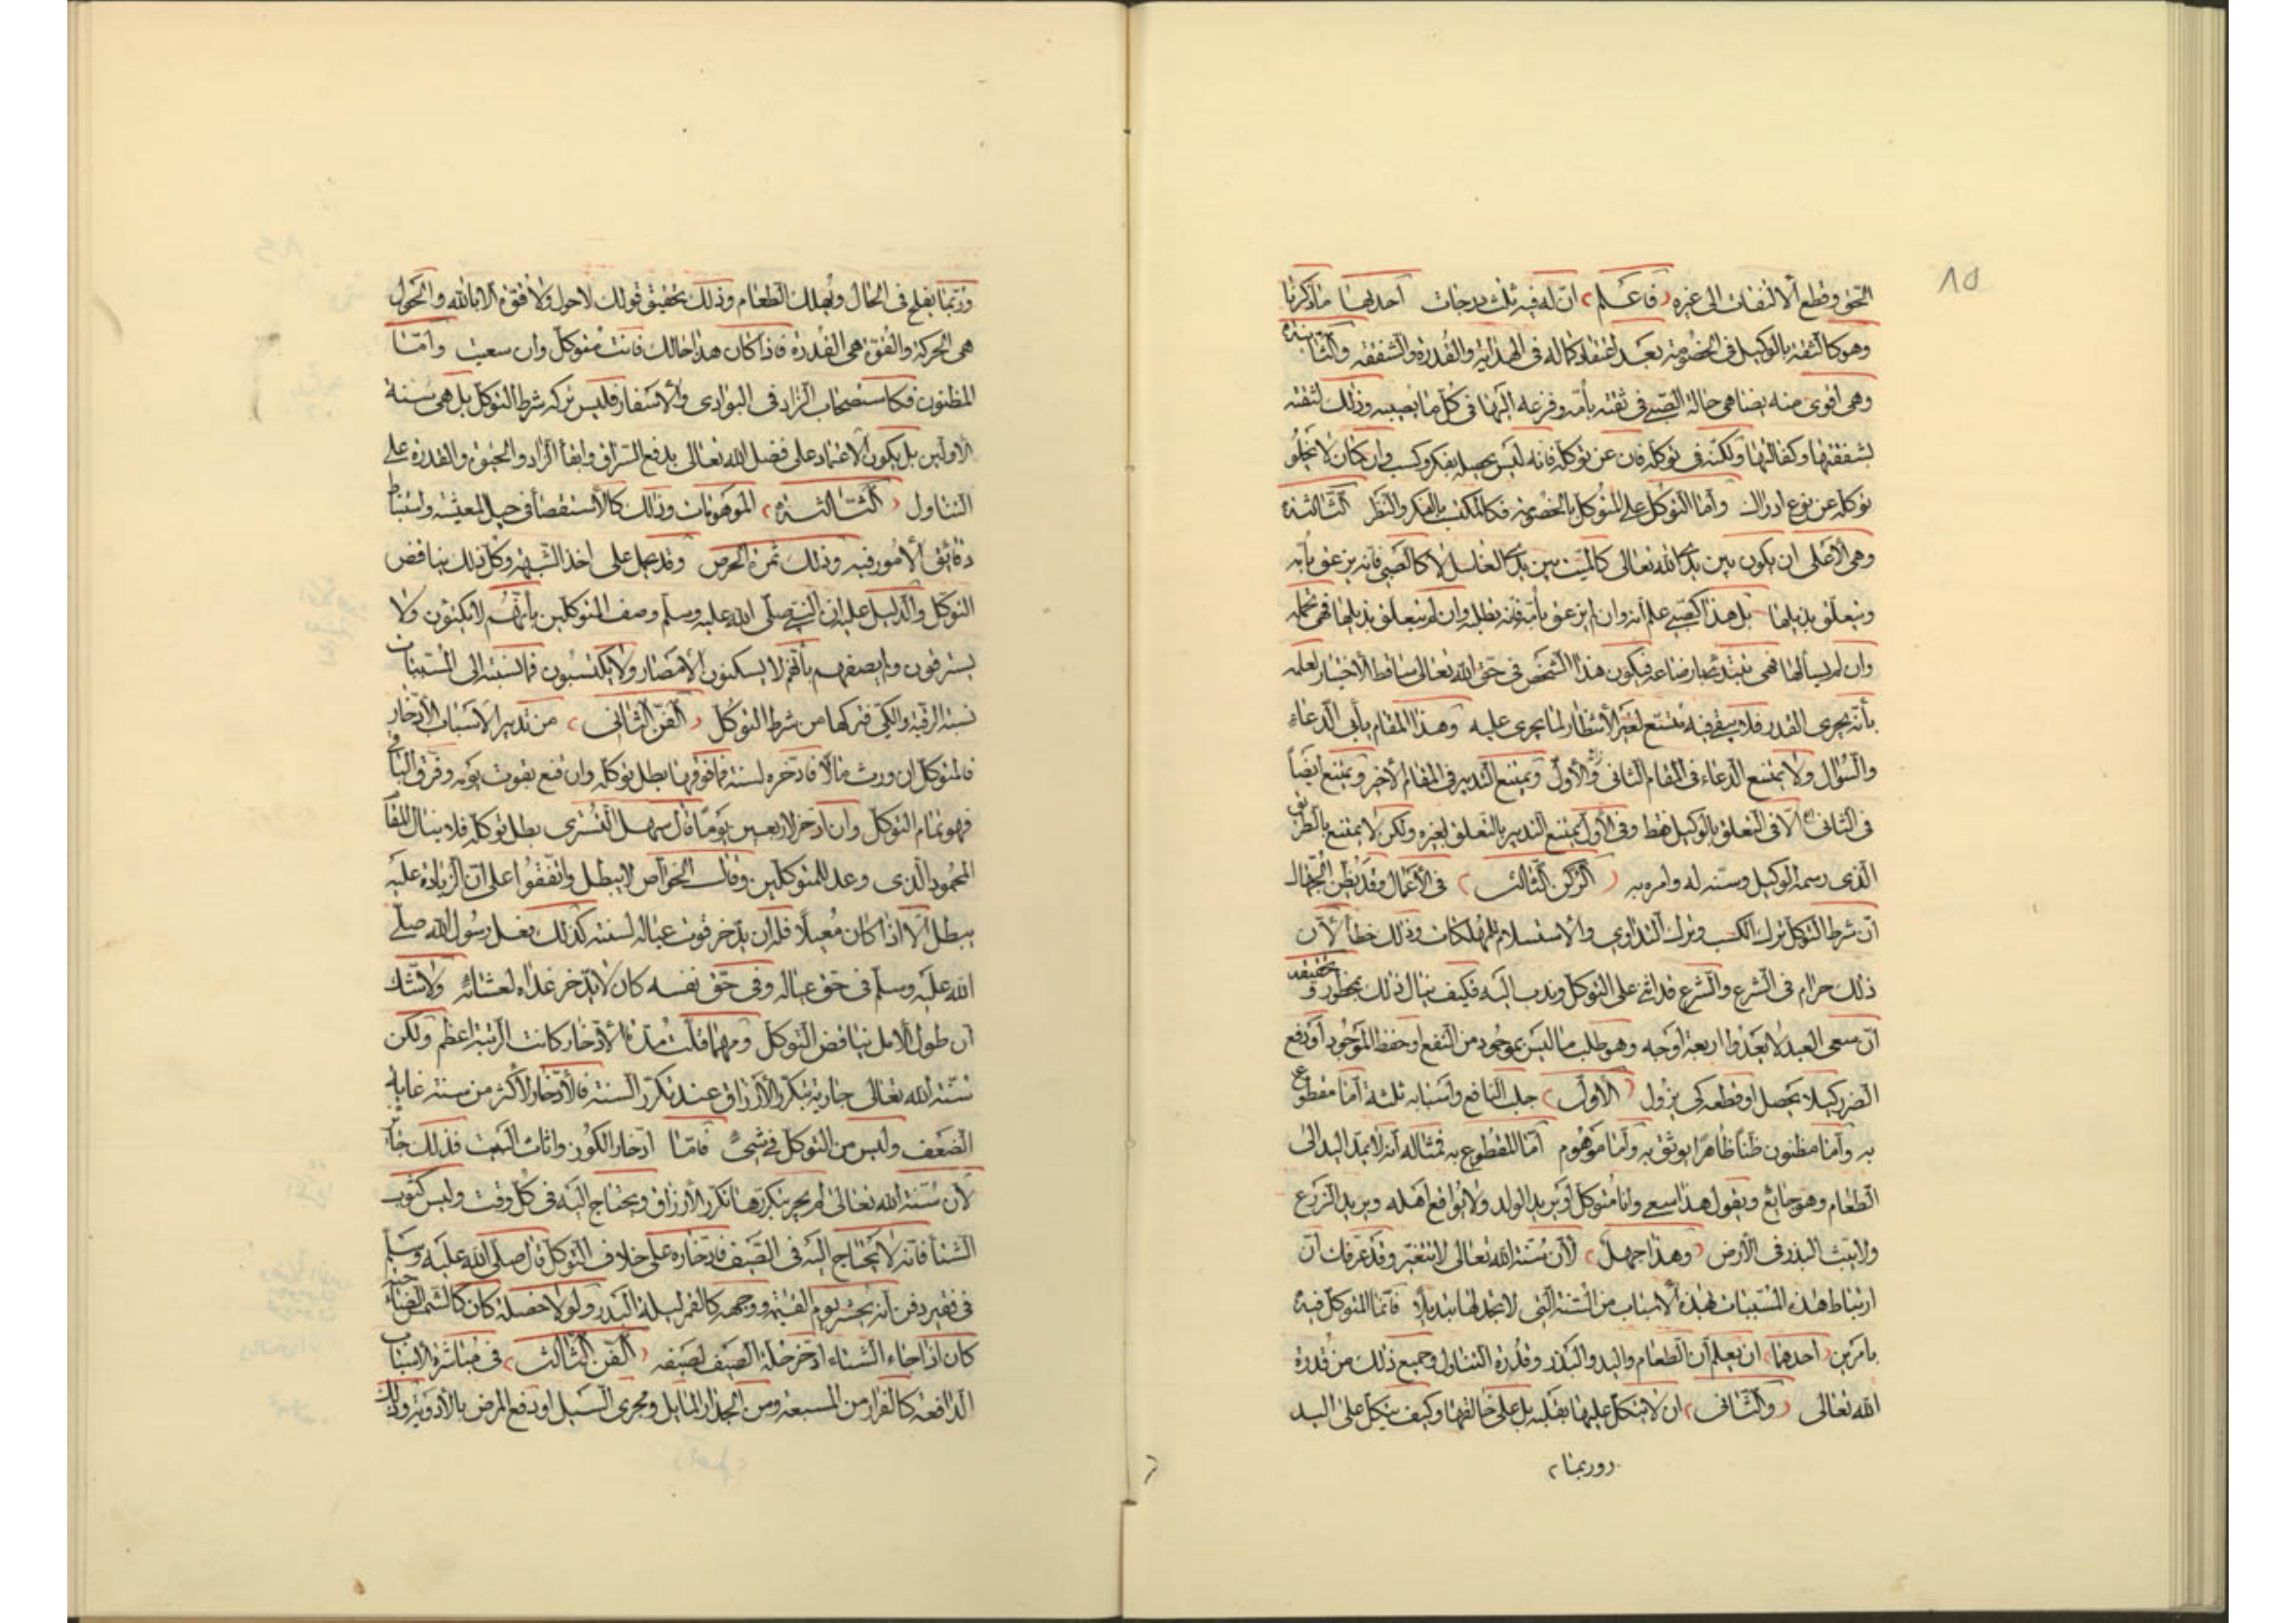 ٨٥
الحق وقطع الالتفات الى غيره فاعلم ان له فيه ثلث درجات احديها ما ذكرنا
وهو كالثقة بالوكيل فى الخصومة بعد اعتقاد كماله فى الهداية والقدرة والشفقة والثانية
وهى اقوى منه يضاهى حالة الصبى فى ثقته بامه وفزعه اليها فى كل ما يصيبه وذلك لثقته
بشفقتها وكفالتها ولكنه فى توكله فان عن توكله فانه ليس يحصله بفكر وكسب وان كان لا يخلو
توكله عن نوع ادراك واما التوكل على المتوكل بالخصومة فكالمكتسب بالفكر والنظر الثالثة
وهى الاعلى ان يكون بين يدى الله تعالى كالميت بين يدى الغاسل لا كالصبى فانه يزعق بامه
ويتعلق بذيلها بل هذا كصبى علم انه وان لم يزعق بامه فانه تطلبه وان لم يتعلق بذيلها فهى تحمله
وان لم يسألها فهى تبتدئ بارضاعه فيكون هذا الشخص فى حق الله تعالى ساقط الاختيار لعلمه
بأنه يجرى القدر فلا يبقى فيه متسع لغير الانتظار لما يجرى عليه وهذا المقام يأبى الدعاء
والسؤال ولا يمتنع الدعاء فى المقام الثانى والاول ويمتنع التدبير فى المقام الاخر ويمتنع ايضاً
فى الثانى الا فى التعلق بالوكيل فقط وفى الاول يمتنع التدبير بالتعلق بغيره ولكن لا يمتنع بالطريق
الذى رسمه الوكيل وسنه له وامره به الركن الثالث فى الاعمال وقد يظن الجهال
ان شرط التوكل ترك الكسب وترك التداوى والاستسلام للمهلكات وذلك خطأ لان
ذلك حرام فى الشرع والشرع قد اثنى على التوكل وندب اليه فكيف ينال ذلك بمحظور وتحقيقه
ان سعى العبد لا يعدوا اربعة اوجه وهو طلب ما ليس بموجود من النفع او حفظ الموجود او دفع
الضرر كيلا يحصل او قطعه كى يزول الاول جلب النافع واسبابه ثلثة اما مقطوع
به واما مظنون ظناً ظاهراً يوثق به واما موهوم اما المقطوع به فمثاله انه لا يمد اليد الى
الطعام وهو جائع ويقول هذا سعى وانا متوكل او يريد الولد ولا يواقع اهله ويريد الزرع
ولا يبث البذر فى الارض وهذا جهل لان سنة الله تعالى لا تتغير وقد عرفك ان
ارتباط هذه المسببات بهذه الاسباب من السنة التى لا تجد لها تبديلاً فانما المتوكل فيه
بامرين احدهما ان يعلم ان الطعام واليد والبذر وقدرة التناول وجميع ذلك من قدرة
الله تعالى والثانى ان لا يتكل عليها بقلبه بل على خالقها وكيف يتكل على اليد
وربما
وربما يفلج فى الحال ويهلك الطعام وذلك تحقيق قولك لا حول ولا قوة الا بالله والحول
هى الحركة والقوة هى القدرة فاذا كان هذا حالك فانت متوكل وان سعيت واما
المظنون فكاستصحاب الزاد فى البوادى والاسفار فليس تركه شرط التوكل بل هى سنة
الاولين بل يكون الاعتماد على فضل الله تعالى بدفع السراق وابقأ الزاد والحيوة والقدرة على
التناول الثالثة الموهومات وذلك كالاستقصأ فى حيل المعيشة واستنباط
دقائق الامور فيه وذلك ثمرة الحرص وقد يحمل على اخذ الشبهة وكل ذلك يناقض
التوكل والدليل عليه ان النبى صلى الله عليه وسلم وصف المتوكلين بأنهم لا يكتوون ولا
يسترقون ولم يصفهم بأنهم لا يسكنون الامصار ولا يكتسبون فما نسبته الى المسببات
نسبة الرقية والكى فتركها من شرط التوكل الفن الثانى من تدبير الاسباب الادخار
فالمتوكل ان ورث مالاً فادخره لسنة فما فوقها بطل توكله وان قنع بقوت يومه وفرق الباقى
فهو تمام التوكل وان ادخر لاربعين يوماً قال سهل التسترى بطل توكله فلا ينال المقام
المحمود الذى وعد للمتوكلين وقال الخواص لا يبطل واتفقوا على ان الزيادة عليه
يبطل الا اذا كان معيلاً فله ان يدخر قوت عياله لسنة كذلك فعل رسول الله صلى
الله عليه وسلم فى حق عياله وفى حق نفسه كان لا يدخر غداه لعشائه ولا شك
ان طول الامل يناقض التوكل ومهما قلت مدة الادخار كانت الرتبة اعظم ولكن
سنة الله تعالى جارية بتكرر الارزاق عند تكرر السنة فالادخار لاكثر من سنة غاية
الضعف وليس من التوكل فى شئ فاما ادخار الكوز واثاث البيت فذلك جائز
لان سنة الله تعالى لم يجر بتكررها تكرر الارزاق ويحتاج اليه فى كل وقت وليس كثوب
الشتأ فانه لا يحتاج اليه فى الصيف فادخاره على خلاف التوكل قال صلى الله عليه وسلم
فى فقير دفن انه يحشر يوم القيمة ووجهه كالقمر ليلة البدر ولولا خصلة كان كالشمس الضاحية
كان اذا جاء الشتاء ادخر حلة الصيف لصيفه الفن الثالث فى مباشرة الاسباب
الدافعة كالفرار من المسبعة ومن الجدار المايل ومجرى السيل او دفع المرض بالادوية وذلك